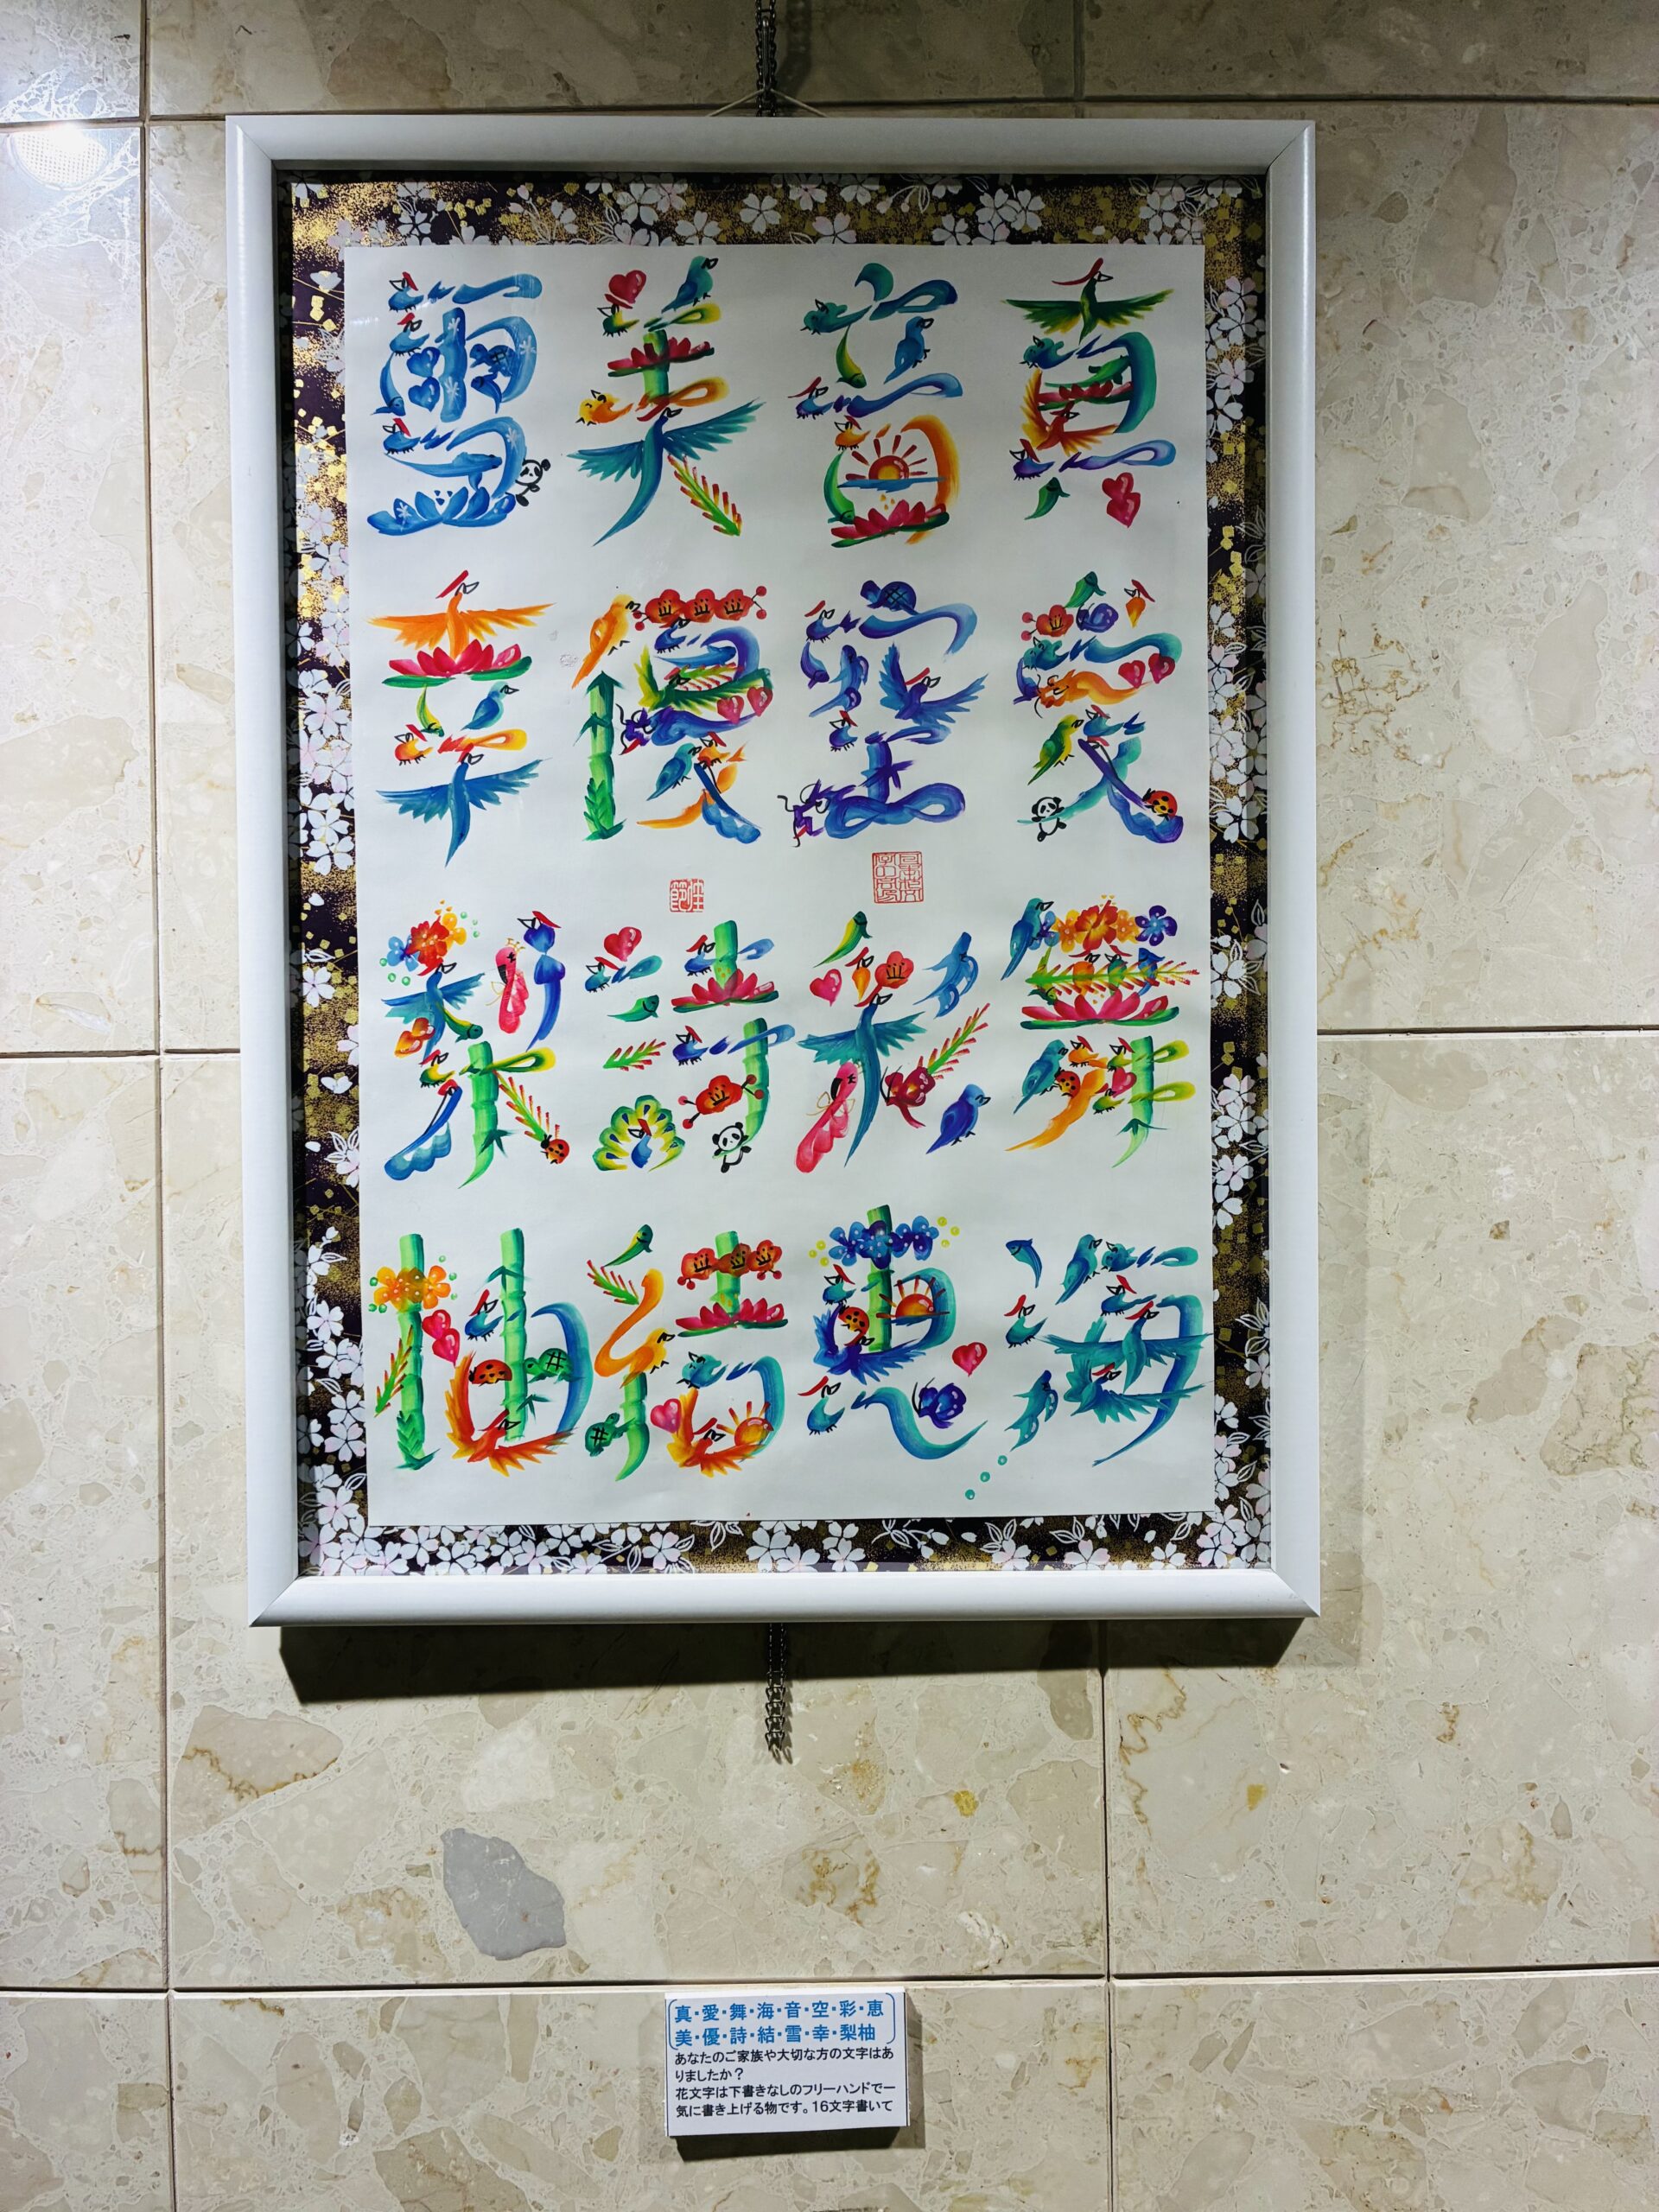 真愛舞海
音空彩恵
美優詩結
雪幸梨柚
真・愛・舞・海・音・空・彩・恵
美・優・詩・結・雪・幸・梨柚
あなたのご家族や大切な方の文字はあ
りましたか？
花文字は下書きなしのフリーハンドで一
気に書き上げる物です。16文字書いて